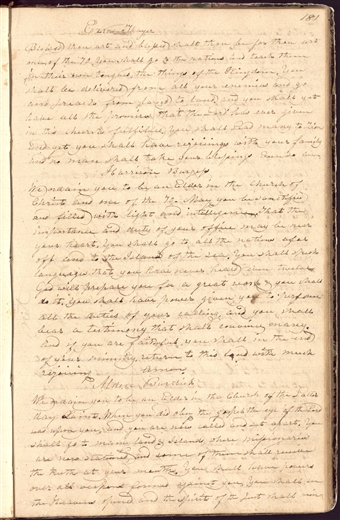 181
Ezra Thayer
Blessed thou art and blessed shalt thou be for thou art
one of the 70. You shall go to the nations and teach them
in their own tongue, the things of the Kingdom, you
shall be delivered from all your enemies and go
from land to land, and you shall yet
have all the promises that the Lord has ever given
in thy heart fulfilled, you shall lead many to Zion
and yet you shall have rejoicings with your family
and no man shall take your blessings
Harrison Burgess
We ordain you to be an Elder in the Church of
Christ and one of the 70. May you be sanctified
and filled with light and intelligence, that the
importance and duty of your office may be near
your heart, You shall go to all the nations afar
off and to the Islands of the sea, You shall speak
languages that you have never heard
God will prepare you for a great work & you shall
do it, You shall have power given you to perform
all the duties of your calling, and you shall
bear a testimony that shall convince many,
and if you are faithful, you shall in the end
of your ministry return to this land with much
rejoicing Amen.
Alden Burdick
We ordain you to be an Elder in the Church of the Latter
day Saints. When you did obey the gospel the eye of the Lord
was upon you, and you are now called and set apart, you
shall go to many lands & Islands, where Missionaries
are now stationed and some of them shall receive
the truth at your mouth, You shall have power
over all weapons formed against you, You shall
the Heavens opened and the Spirit of the Lord shall